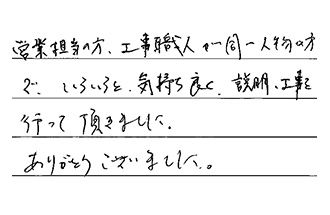 営業担当の方、工事職人が同一人物の方
で、いろいろと、気持ち良く、説明、工事を
行って頂きました。
ありがとうございました。